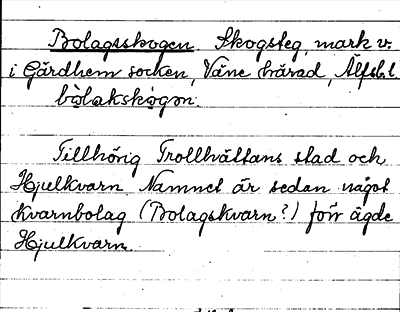 Bolagsskogen. Skogsteg, mark v.
i Gärdhem socken, Väne härad, Älfsb.l.
bòlakskògon.
Tillhörig Trollhättans stad och
Hjulkvarn. Namnet är sedan något
Kvarnbolag (Bolagskvarn?) förr ägde
Hjulkvarn.